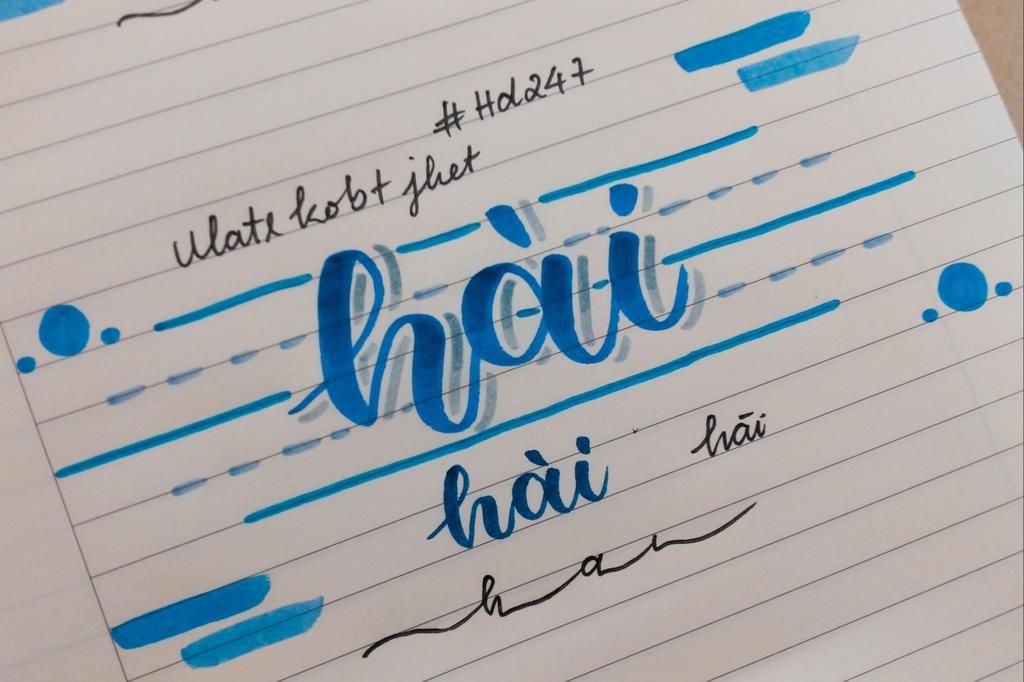 #Hd247
Ulate kobt jhet
hài
hài
hāi
han